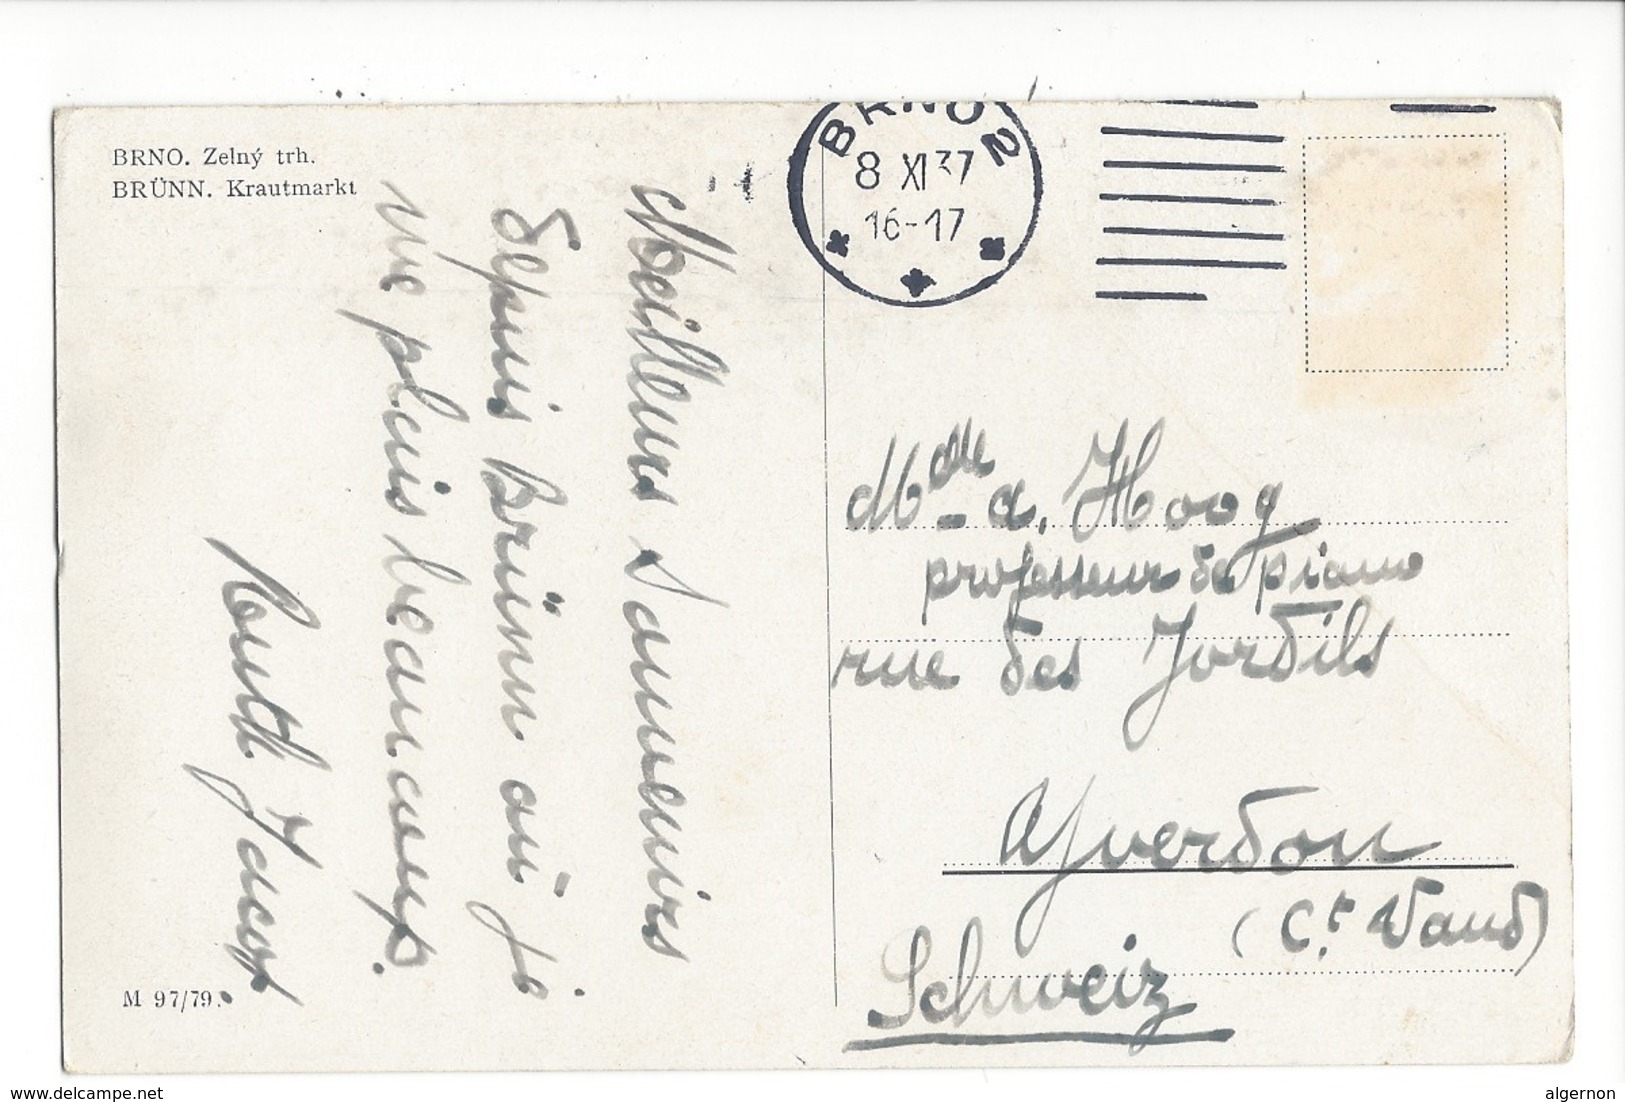 BRNO. Zelný trh.
BRÜNN. Krautmarkt
BRNO 2
8 XI 37
16-17
Meilleurs souvenirs
depuis Brünn où je
me plais beaucoup.
Ruth Jacot
Mdlle A. Hoog
professeur de piano
rue des Jordils
Yverdon
(Ct. Vaud)
Schweiz
M 97/79.
www.delcampe.net
algernon